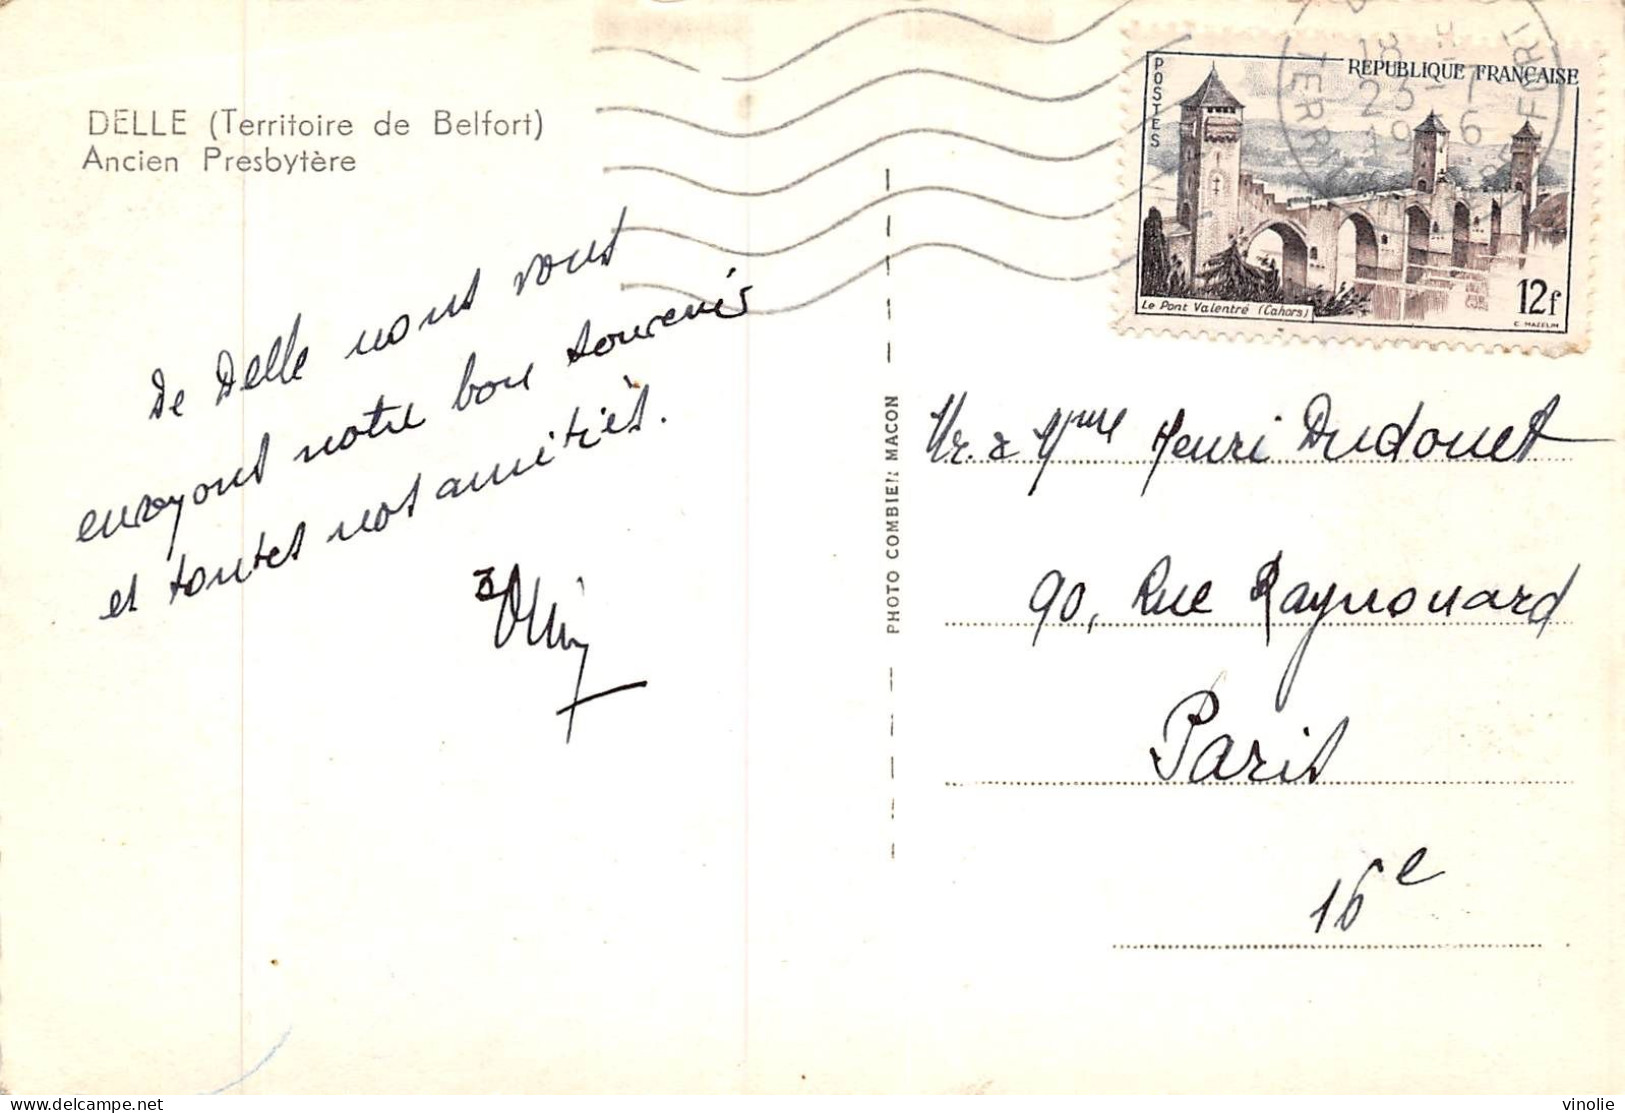 DELLE (Territoire de Belfort)
Ancien Presbytère
De Delle nous vous
envoyons notre bon souvenir
et toutes nos amitiés.
PHOTO COMBIER MACON
POSTES
REPUBLIQUE FRANÇAISE
Le Pont Valentré (Cahors)
12f
C. MAZELIN
18 H
25-7
19 6
TERR DE BELFORT
Mr. & Mme Henri Dudouet
90, Rue Raynouard
Paris
16e
delcampe.net
vinolie